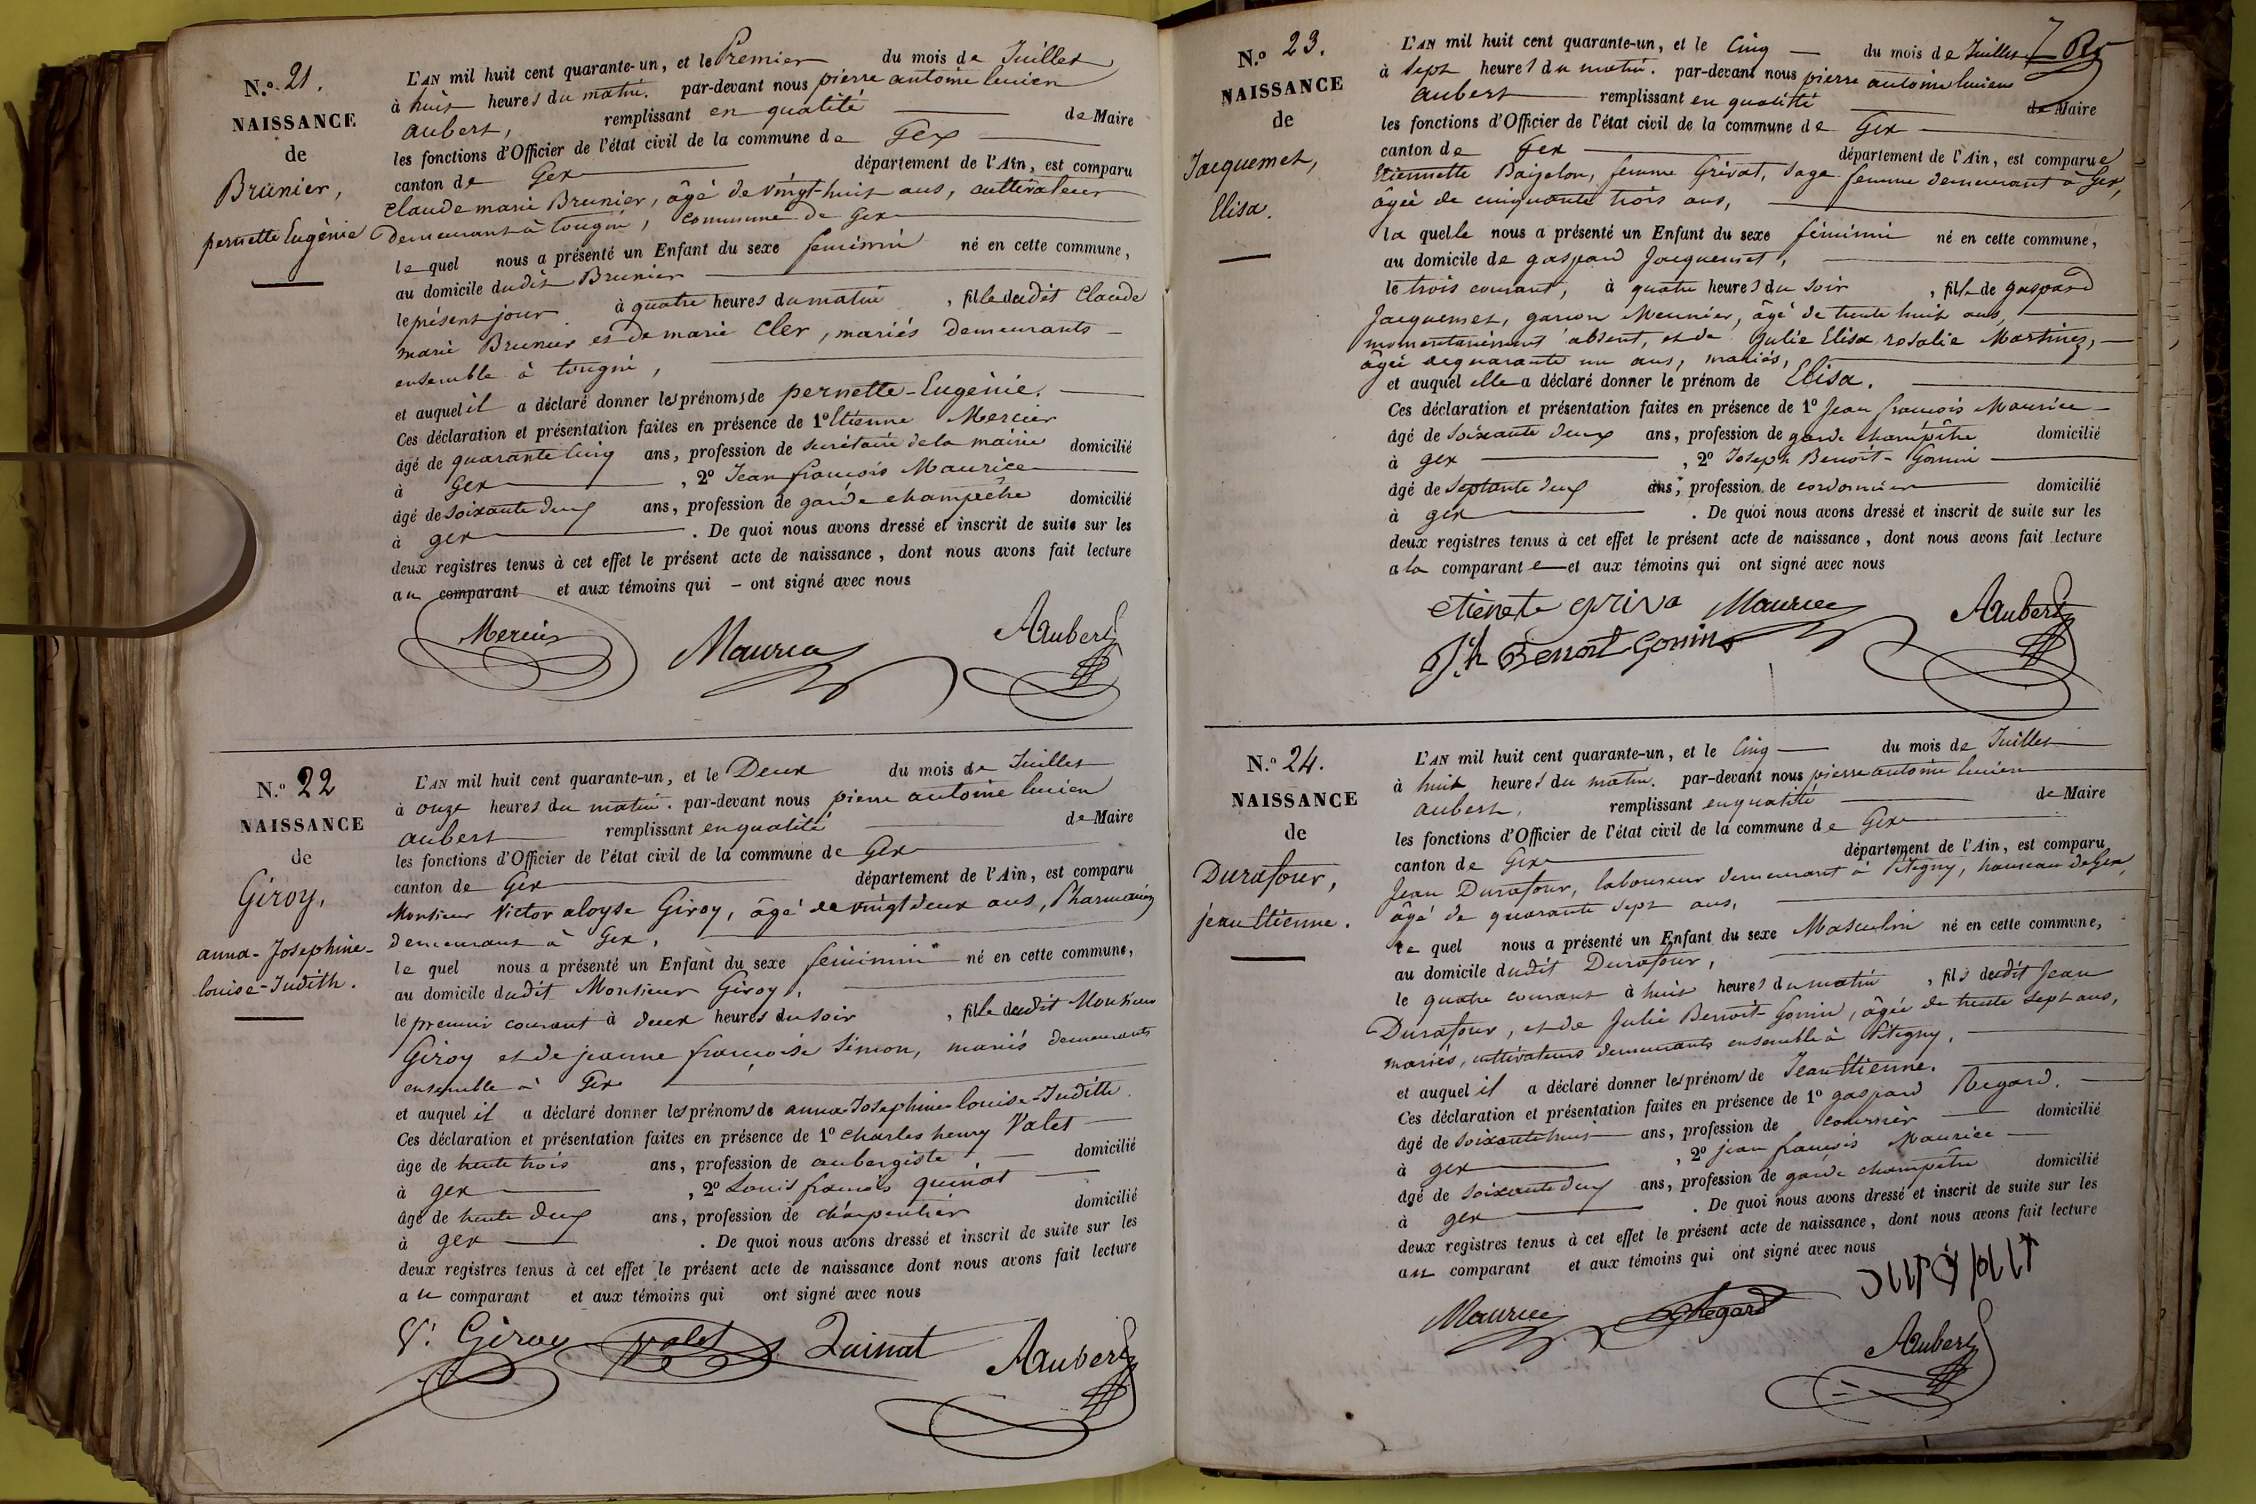 N.o 21.
NAISSANCE
de
Brunier,
pernette Eugènie
L'AN mil huit cent quarante-un, et le Premier du mois de Juillet
à huit heures du matin. par-devant nous pierre antoine lucien
aubert, remplissant en qualité de Maire
les fonctions d'Officier de l'état civil de la commune de Gex
canton de Gex département de l'Ain, est comparu
Claude marie Brunier, âgé de vingt-huit ans, cultivateur
demeurant à tougin, commune de Gex
le quel nous a présenté un Enfant du sexe féminin né en cette commune,
au domicile dudit Brunier
le présent jour à quatre heures du matin, fille dudit Claude
marie Brunier et de marie Cler, mariés demeurants
ensemble à tougin,
et auquel il a déclaré donner les prénoms de pernette-Eugènie.
Ces déclaration et présentation faites en présence de 1o Etienne Mercier
âgé de quarante cinq ans, profession de secrétaire de la mairie domicilié
à Gex, 2o Jean françois Maurice
âgé de soixante deux ans, profession de garde champêtre domicilié
à gex. De quoi nous avons dressé et inscrit de suite sur les
deux registres tenus à cet effet le présent acte de naissance, dont nous avons fait lecture
au comparant et aux témoins qui – ont signé avec nous
Mercier Maurice Aubert
N.o 22
NAISSANCE
de
Giroy,
anna-Josephine-
louise-Judith.
L'AN mil huit cent quarante-un, et le Deux du mois de Juillet
à onze heures du matin. par-devant nous pierre antoine lucien
aubert remplissant en qualité de Maire
les fonctions d'Officier de l'état civil de la commune de Gex
canton de Gex département de l'Ain, est comparu
Monsieur Victor aloyse Giroy, âgé de vingt deux ans, Pharmacien
demeurant à Gex,
le quel nous a présenté un Enfant du sexe féminin né en cette commune,
au domicile dudit Monsieur Giroy,
le premier courant à deux heures du soir, fille dudit Monsieur
Giroy et de jeanne françoise Simon, mariés demeurants
ensemble à Gex
et auquel il a déclaré donner les prénoms de anna-Josephine louise-Judith.
Ces déclaration et présentation faites en présence de 1o Charles henry Valet
âge de trente trois ans, profession de aubergiste domicilié
à gex, 2o Louis françois quinat
âgé de trente deux ans, profession de charpentier domicilié
à gex. De quoi nous avons dressé et inscrit de suite sur les
deux registres tenus à cet effet le présent acte de naissance dont nous avons fait lecture
au comparant et aux témoins qui ont signé avec nous
V. Giroy Valet Quinat Aubert
N.o 23.
NAISSANCE
de
Jacquemet,
Elisa.
L'AN mil huit cent quarante-un, et le Cinq du mois de Juillet
à sept heures du matin. par-devant nous pierre antoine lucien
aubert remplissant en qualité de Maire
les fonctions d'Officier de l'état civil de la commune de Gex
canton de Gex département de l'Ain, est comparue
Etiennette femme Grivat, sage femme demeurant à Gex,
âgée de cinquante trois ans,
la quelle nous a présenté un Enfant du sexe féminin né en cette commune,
au domicile de gaspard Jacquemet,
le trois courant, à quatre heures du soir, fille de gaspard
Jacquemet, garçon Meunier, âgé de trente huit ans,
momentanément absent, et de Julie Elisa rosalie Martinez,
âgée de quarante un ans, mariés,
et auquel elle a déclaré donner le prénom de Elisa.
Ces déclaration et présentation faites en présence de 1o Jean françois Maurice
âgé de soixante deux ans, profession de garde champêtre domicilié
à gex, 2o Joseph Benoit-Gonin
âgé de septante deux ans, profession de cordonnier domicilié
à gex. De quoi nous avons dressé et inscrit de suite sur les
deux registres tenus à cet effet le présent acte de naissance, dont nous avons fait lecture
a la comparante et aux témoins qui ont signé avec nous
etienete griva Maurice Aubert
Jh Benoit Gonin
N.o 24.
NAISSANCE
de
Durafour,
jean Etienne.
L'AN mil huit cent quarante-un, et le Cinq du mois de Juillet
à huit heures du matin. par-devant nous pierre antoine lucien
aubert, remplissant en qualité de Maire
les fonctions d'Officier de l'état civil de la commune de Gex
canton de Gex département de l'Ain, est comparu
Jean Durafour, laboureur demeurant à Pitegny, hameau de Gex,
âgé de quarante sept ans,
le quel nous a présenté un Enfant du sexe Masculin né en cette commune,
au domicile dudit Durafour,
le quatre courant à huit heures du matin, fils dudit Jean
Durafour, et de Julie Benoit-Gonin, âgée de trente sept ans,
mariés, cultivateurs demeurants ensemble à Pitegny,
et auquel il a déclaré donner les prénoms de Jean Etienne.
Ces déclaration et présentation faites en présence de 1o gaspard Regard.
âgé de soixante huit ans, profession de courrier domicilié
à gex, 2o jean françois Maurice
âgé de soixante deux ans, profession de garde champêtre domicilié
à gex. De quoi nous avons dressé et inscrit de suite sur les
deux registres tenus à cet effet le présent acte de naissance, dont nous avons fait lecture
au comparant et aux témoins qui ont signé avec nous
Maurice Regard
Aubert